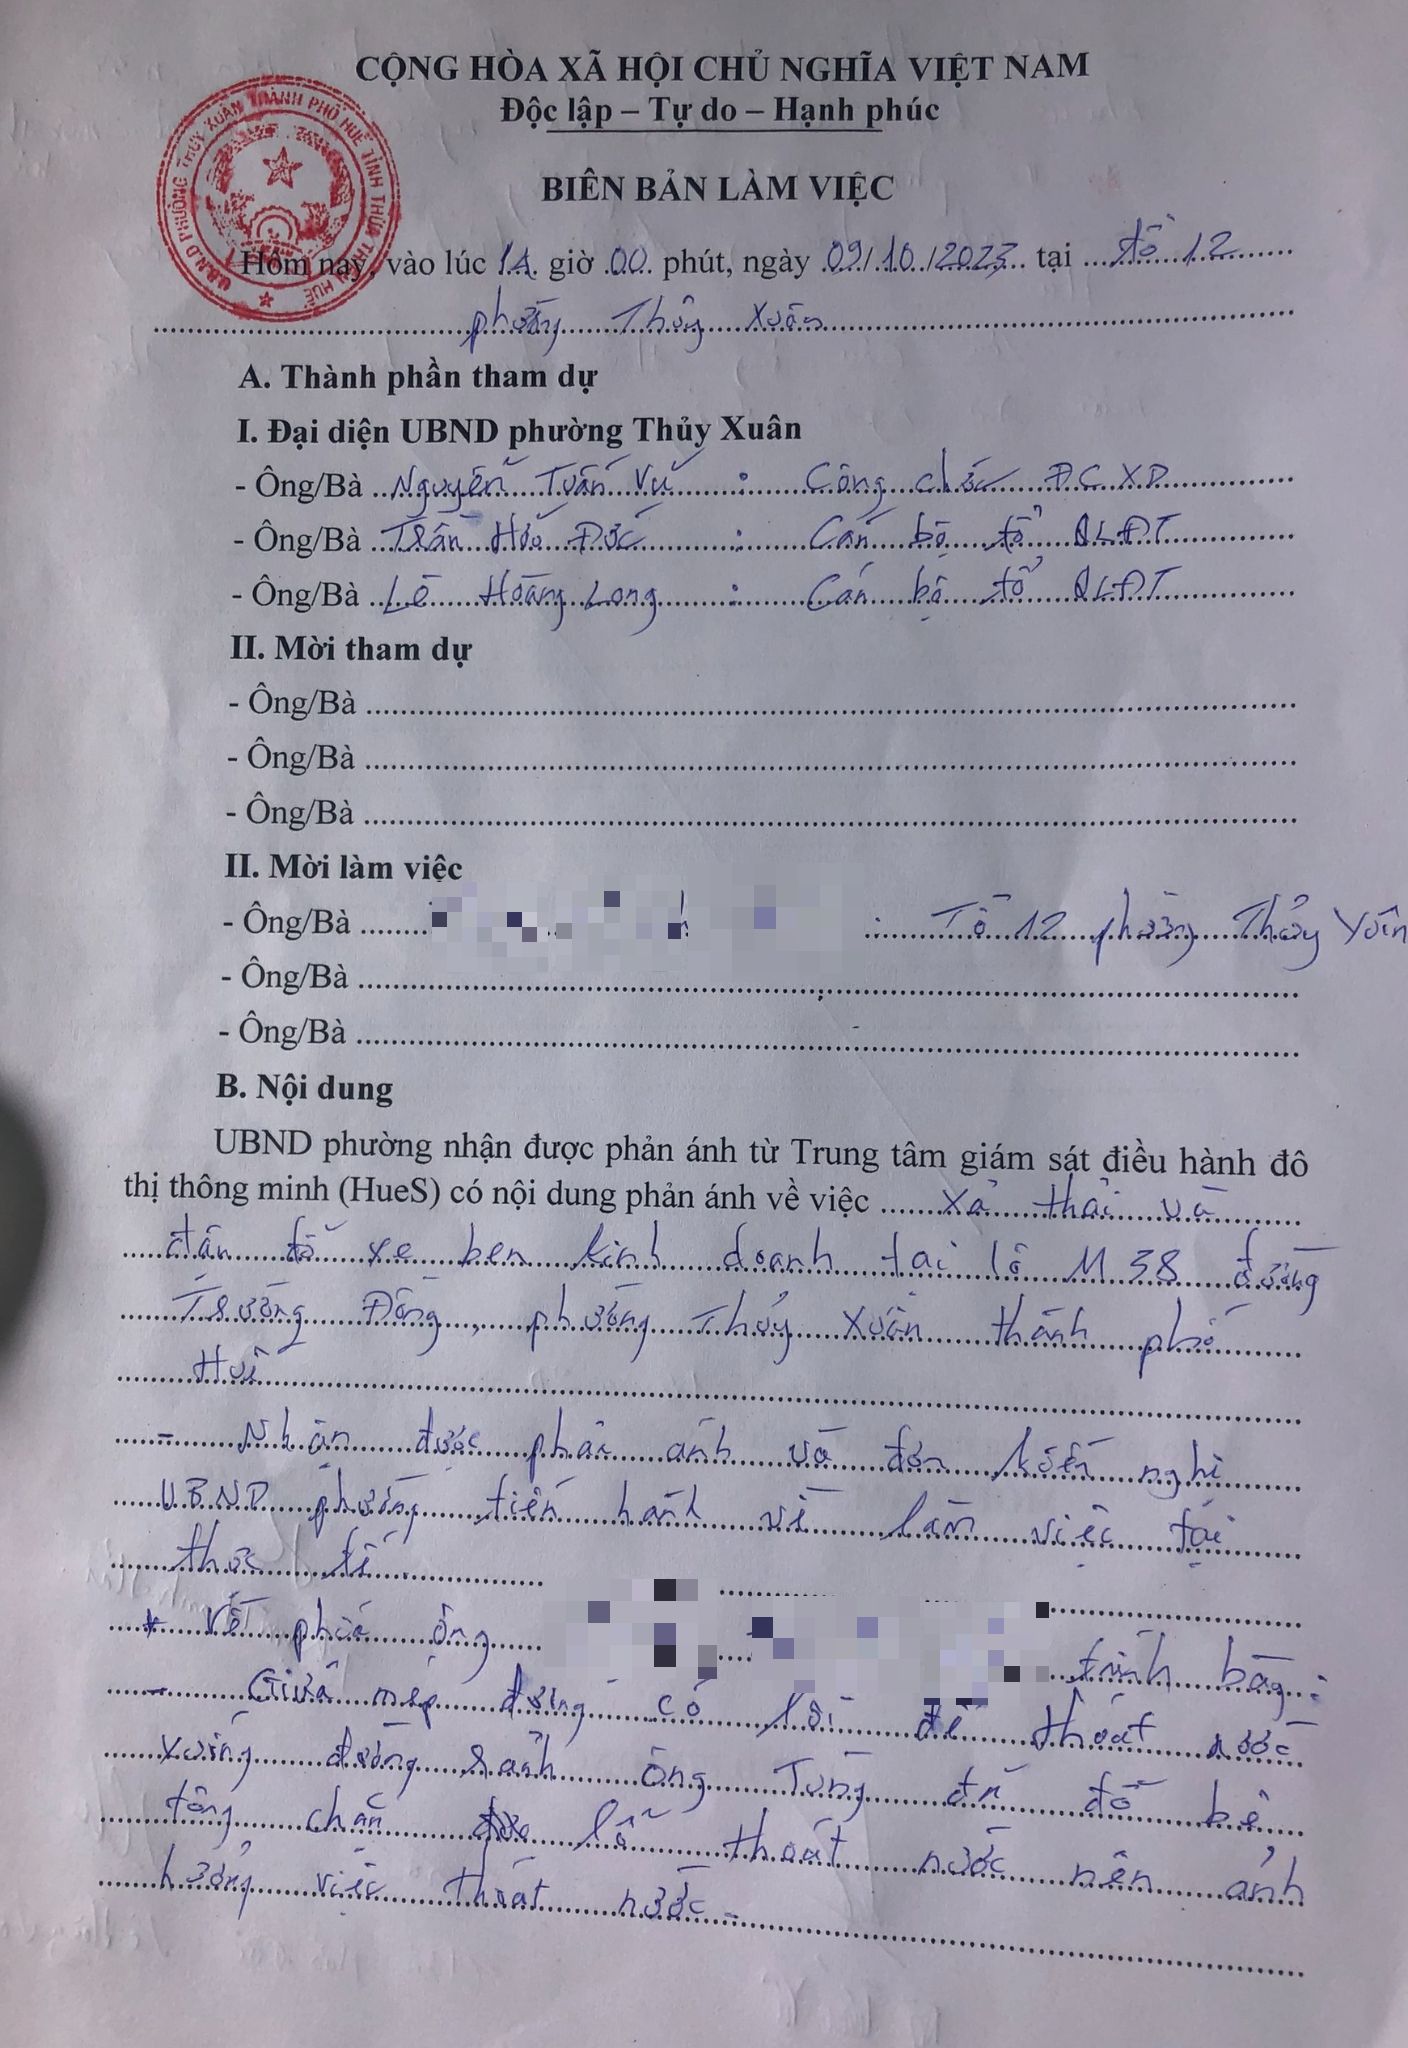 CỘNG HÒA XÃ HỘI CHỦ NGHĨA VIỆT NAM
Độc lập – Tự do – Hạnh phúc
BIÊN BẢN LÀM VIỆC
U.B.N.D PHƯỜNG THỦY XUÂN THÀNH PHỐ HUẾ TỈNH THỪA THIÊN HUẾ
Hôm nay, vào lúc 14 giờ 00 phút, ngày 09/10/2023 tại tổ 12
phường Thủy Xuân
A. Thành phần tham dự
I. Đại diện UBND phường Thủy Xuân
- Ông/Bà Nguyễn Tuấn Vũ : Công chức ĐC XD
- Ông/Bà Trần Hữu Đức : Cán bộ tổ QLĐT
- Ông/Bà Lê Hoàng Long : Cán bộ tổ QLĐT
II. Mời tham dự
- Ông/Bà
- Ông/Bà
- Ông/Bà
II. Mời làm việc
- Ông/Bà : Tổ 12 phường Thủy Xuân
- Ông/Bà
- Ông/Bà
B. Nội dung
UBND phường nhận được phản ánh từ Trung tâm giám sát điều hành đô
thị thông minh (HueS) có nội dung phản ánh về việc xả thải và
đậu đỗ xe ben kinh doanh tại lô M38 đường
Trường Đông, phường Thủy Xuân thành phố
Huế
- Nhận được phản ánh và đơn kiến nghị
UBND phường tiến hành về làm việc tại
thực tế.
* Về phía ông trình bày:
- Giữa mép đường có lối để thoát nước
xuống đường rãnh ông Tùng đã đổ bê
tông chắn lỗ thoát nước nên ảnh
hưởng việc thoát nước.